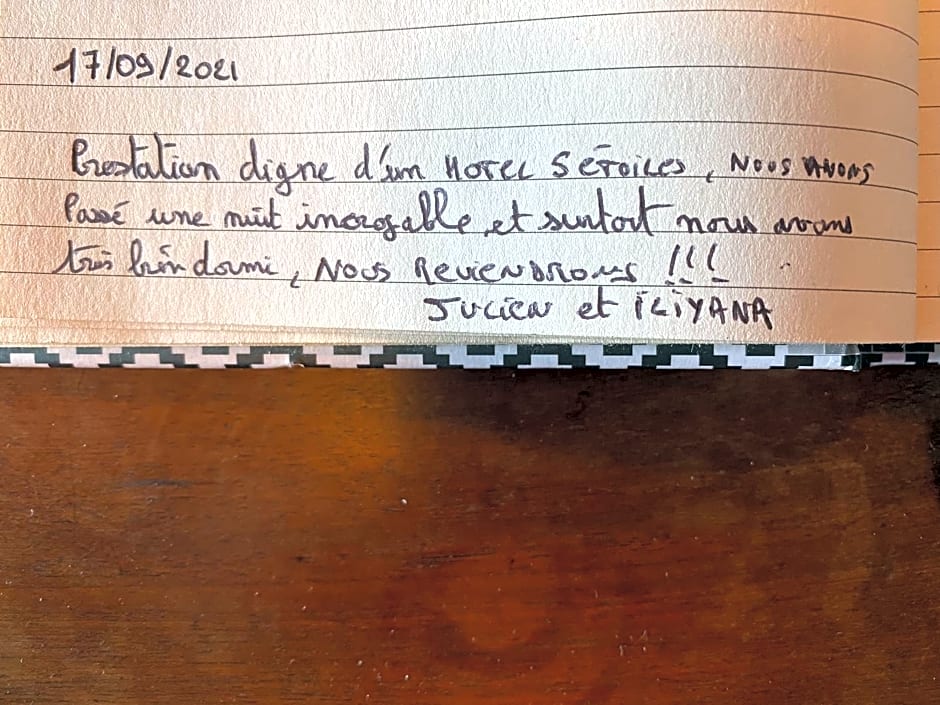 17/09/2021
Prestation digne d'un Hotel 5 étoiles, Nous avons
Passé une nuit incroyable et surtout nous avons
très bien dormi, Nous Reviendrons !!!
Julien et iliyana